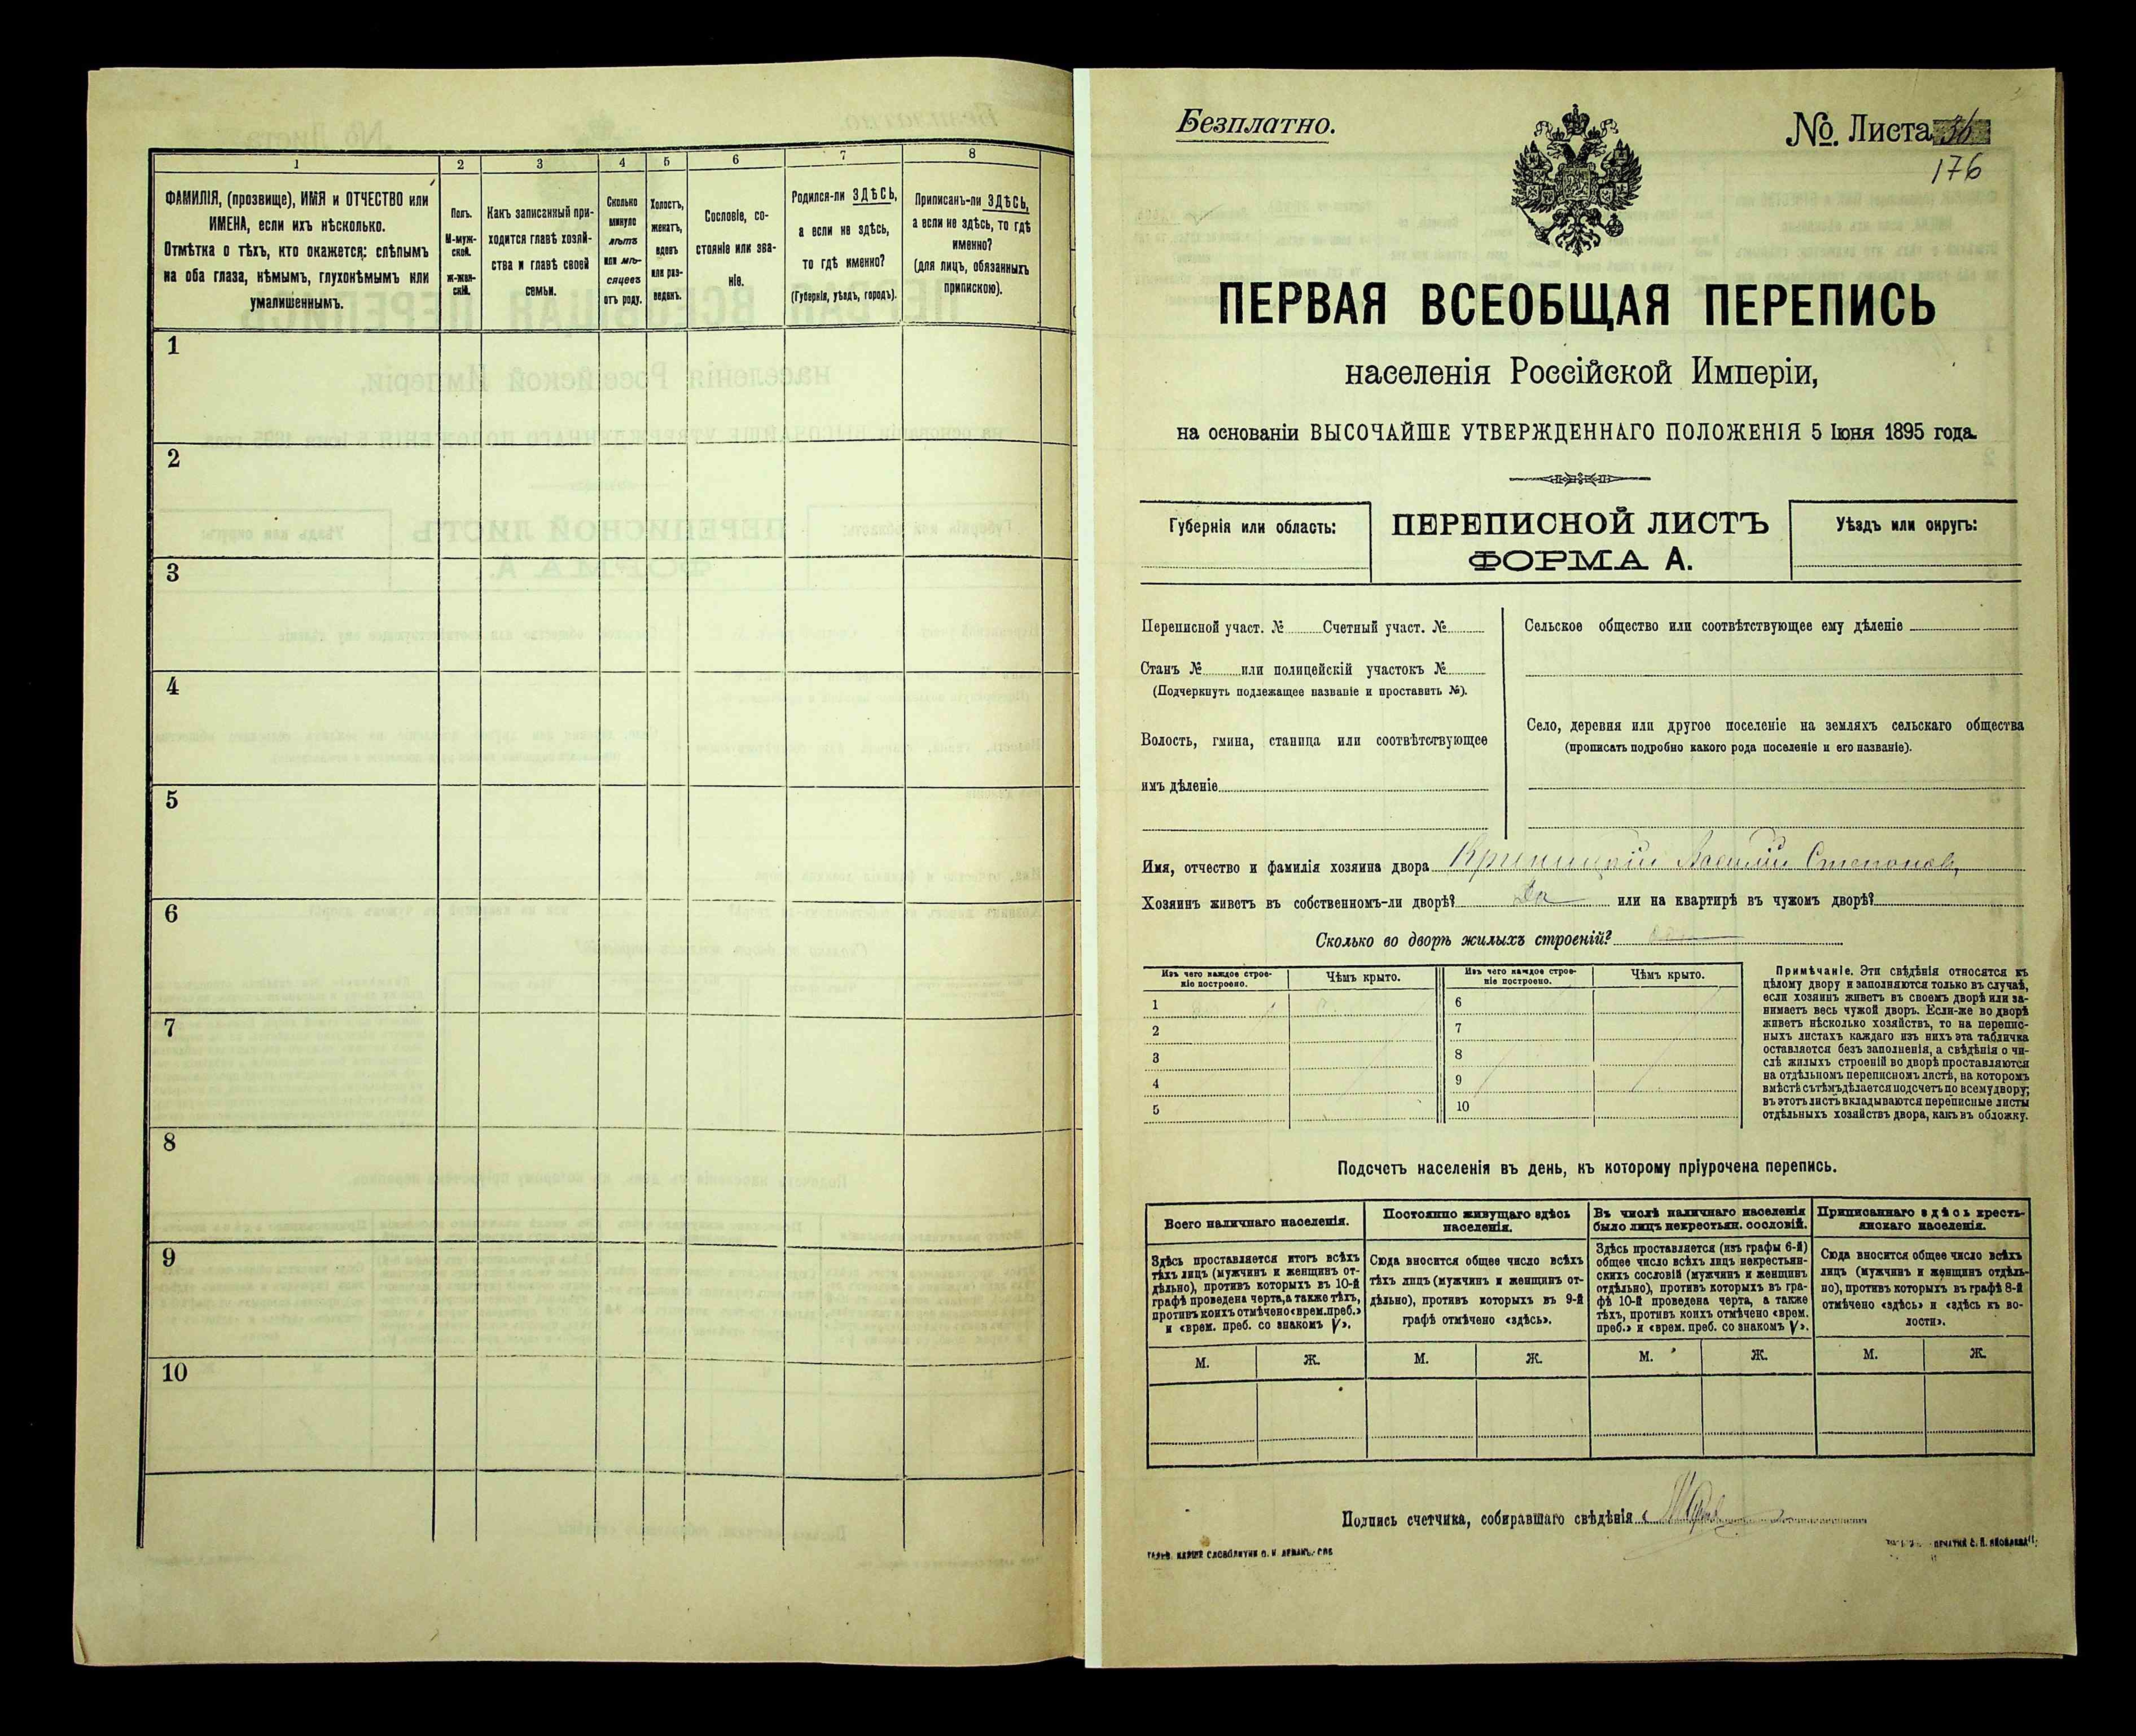 1 2 3 4 5 6 7 8
ФАМИЛІЯ, (прозвище), ИМЯ и ОТЧЕСТВО или
ИМЕНА, если ихъ нѣсколько.
Отмѣтка о тѣхъ, кто окажется: слѣпымъ
на оба глаза, нѣмымъ, глухонѣмымъ или
умалишеннымъ.
Полъ.
М-муж-
ской.
Ж-жен-
скій.
Какъ записанный при-
ходится главѣ хозяй-
ства и главѣ своей
семьи.
Сколько
минуло
лѣтъ
или мѣ-
сяцевъ
отъ роду.
Холостъ,
женатъ,
вдовъ
или раз-
веденъ.
Сословіе, со-
стояніе или зва-
ніе.
Родился-ли ЗДѢСЬ,
а если не здѣсь,
то гдѣ именно?
(Губернія, уѣздъ, городъ).
Приписанъ-ли ЗДѢСЬ,
а если не здѣсь, то гдѣ
именно?
(для лицъ, обязанныхъ
припискою).
1
2
3
4
5
6
7
8
9
10
Безплатно.
№. Листа 36
176
ПЕРВАЯ ВСЕОБЩАЯ ПЕРЕПИСЬ
населенія Россійской Имперіи,
на основаніи ВЫСОЧАЙШЕ УТВЕРЖДЕННАГО ПОЛОЖЕНІЯ 5 Іюня 1895 года.
Губернія или область:
ПЕРЕПИСНОЙ ЛИСТЪ
ФОРМА А.
Уѣздъ или округъ:
Переписной участ. № Счетный участ. №
Станъ № или полицейскій участокъ №
(Подчеркнуть подлежащее названіе и проставить №).
Волость, гмина, станица или соотвѣтствующее
имъ дѣленіе
Сельское общество или соотвѣтствующее ему дѣленіе
Село, деревня или другое поселеніе на земляхъ сельскаго общества
(прописать подробно какого рода поселеніе и его названіе).
Имя, отчество и фамилія хозяина двора Василій Степановъ
Хозяинъ живетъ въ собственномъ-ли дворѣ? Да или на квартирѣ въ чужомъ дворѣ?
Сколько во дворѣ жилыхъ строеній?
Изъ чего каждое строе-
ніе построено.
Чѣмъ крыто.
Изъ чего каждое строе-
ніе построено.
Чѣмъ крыто.
1 6
2 7
3 8
4 9
5 10
Примѣчаніе. Эти свѣдѣнія относятся къ
цѣлому двору и заполняются только въ случаѣ,
если хозяинъ живетъ въ своемъ дворѣ или за-
нимаетъ весь чужой дворъ. Если-же во дворѣ
живетъ нѣсколько хозяйствъ, то на перепис-
ныхъ листахъ каждаго изъ нихъ эта табличка
оставляется безъ заполненія, а свѣдѣнія о чи-
слѣ жилыхъ строеній во дворѣ проставляются
на отдѣльномъ переписномъ листѣ, на которомъ
вмѣстѣ съ тѣмъ дѣлается подсчетъ по всему двору;
въ этотъ листъ вкладываются переписные листы
отдѣльныхъ хозяйствъ двора, какъ въ обложку.
Подсчетъ населенія въ день, къ которому пріурочена перепись.
Всего наличнаго населенія.
Здѣсь проставляется итогъ всѣхъ
тѣхъ лицъ (мужчинъ и женщинъ от-
дѣльно), противъ которыхъ въ 10-й
графѣ проведена черта, а также тѣхъ,
противъ коихъ отмѣчено «врем. преб.»
и «врем. преб. со знакомъ V».
Постоянно живущаго здѣсь
населенія.
Сюда вносится общее число всѣхъ
тѣхъ лицъ (мужчинъ и женщинъ от-
дѣльно), противъ которыхъ въ 9-й
графѣ отмѣчено «здѣсь».
Въ числѣ наличнаго населенія
было лицъ некрестьян. сословій.
Здѣсь проставляется (изъ графы 6-й)
общее число всѣхъ лицъ некрестьян-
скихъ сословій (мужчинъ и женщинъ
отдѣльно), противъ которыхъ въ гра-
фѣ 10-й проведена черта, а также
тѣхъ, противъ коихъ отмѣчено «врем.
преб.» и «врем. преб. со знакомъ V».
Приписаннаго здѣсь кресть-
янскаго населенія.
Сюда вносится общее число всѣхъ
лицъ (мужчинъ и женщинъ отдѣль-
но), противъ которыхъ въ графѣ 8-й
отмѣчено «здѣсь» и «здѣсь къ во-
лости».
М. Ж. М. Ж. М. Ж. М. Ж.
Подпись счетчика, собиравшаго свѣдѣнія